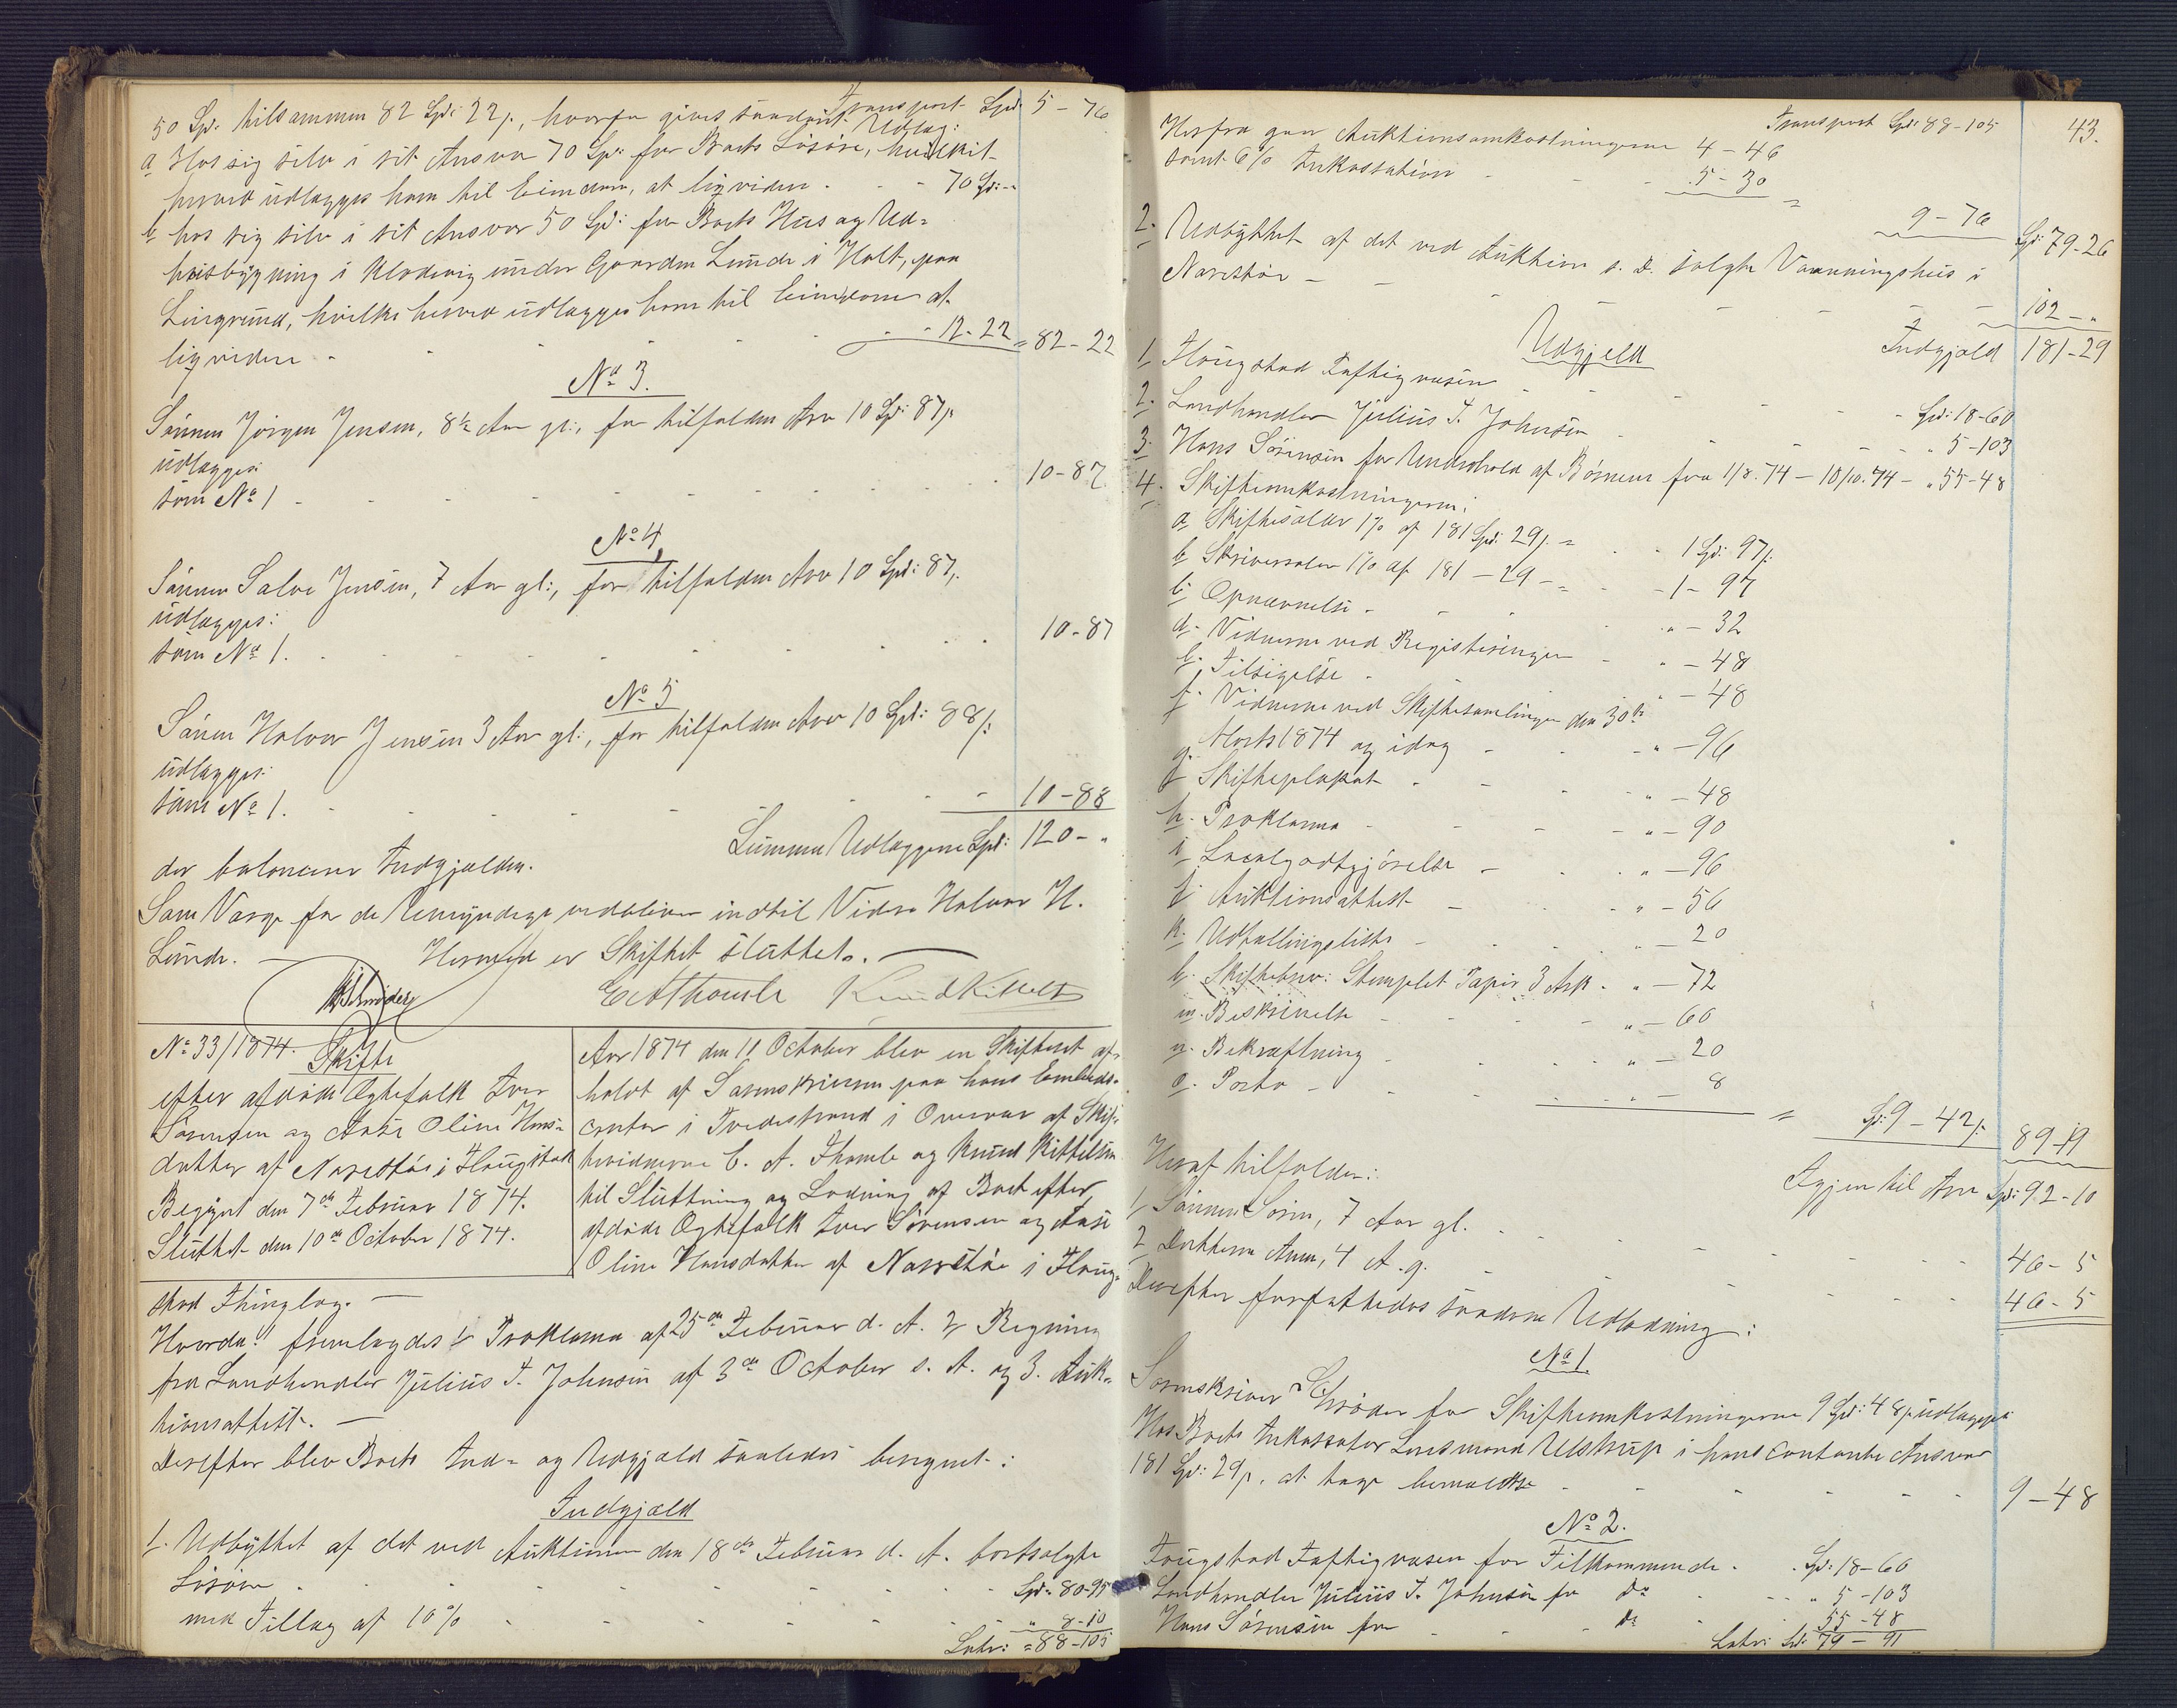 Transport Spd. 5 - 76
50 Spd. tilsammen 82 Spd: 22 s., hvorfor gives saadant Udlæg:
a Hos sig selv i sit Ansvar 70 Spd: for Boets Løsøre, hvilket
herved udlægges ham til Eiendom, at liqvidere - - 70 Spd: -
b hos sig selv i sit Ansvar 50 Spd: for Boets Hus og Ud=
huisbygning i Kladvig under Gaarden Lunde i Holt, paa
Leiegrund, hvilke herved udlægges ham til Eiendom at
liqvidere - - - 12 - 22 = 82 - 22
No 3.
Sønnen Jørgen Jensen, 8½ Aar gl:, for tilfalden Arv 10 Spd: 87 s.
udlægges:
som No 1 - - - 10 - 87
No 4,
Sønnen Salve Jensen, 7 Aar gl:, for tilfalden Arv 10 Spd: 87 s.
udlægges:
som No 1. - - - 10 - 87
No 5
Sønnen Halvor Jensen 3 Aar gl:, for tilfalden Arv 10 Spd: 88 s:
udlægges:
som No 1. - - - 10 - 88
Summa Udlæggene Spd: 120 - "
der balancerer Indgjælden.
Som Værge for de Umyndige vedbliver indtil Videre Halvor H.
Lunde. — Hermed er Skiftet sluttet. —
Schrøder EAThomle Knud Kittels
No 33/1874. Skifte
efter afdøde Ægtefolk Iver
Sørensen og Anse Oline Hans=
datter af Narestøe i Flougstad
Begynt den 7de Februar 1874.
Sluttet den 10de October 1874.
Aar 1874 den 10 October blev en Skifteret af=
holdt af Sorenskriveren paa hans Embeds=
contor i Tvedestrand i Overvær af Skif=
tevidnerne E. A. Thomle og Knud Kittelsen
til Slutning og Lodning af Boet efter
afdøde Ægtefolk Iver Sørensen og Anse
Oline Hansdatter af Narestøe i Floug=
stad Thinglag. —
Hvorda: fremlagdes 1, Proklama af 25de Februar d. A. 2, Regning
fra Landhandler Julius T. Johnsen af 3de October s. A. og 3. Auk=
tionsattest. —
Derefter blev Boets Ind= og Udgjæld saaledes beregnet:
Indgjæld
1. Udbyttet af det ved Auktionen den 18de Februar d. A. bortsolgte
Løsøre - - - Spd. 80-95
med Tillæg af 10% - - - " 8-10
Latus: = 88-105
43.
Transport Spd: 88 - 105
Herfra gaar Auktionsomkostningerne 4 - 46
samt 6% Inkassation - - 5 - 30 =
9 - 76 Spd: 79-26
2. Udbyttet af det ved Auktion s. D. solgte Vaaningshus i
Narestøe - - - 102 - "
Indgjæld 181 - 29
Udgjæld
1 Flougstad Fattigvæsen - - - Spd: 18-60
2. Landhandler Julius T. Johnsen - - - " 5-103
3. Hans Sørensen for Underhold af Børnene fra 1/8.74 - 10/10.74 - " 55-48
4. Skifteomkostningerne:
a Skiftesalær 1% af 181 Spd: 29 s. = - - 1 Spd: 97 s:
b Skriversalær 1% af 181 - 29 - = - - 1 - 97
c. Opnævnelse - - - " - 32
d. Vidnerne ved Registreringen - - " - 48
e. Tilsigelse - - " - 48
f. Vidnerne ved Skiftesamlingen den 30te
Marts 1874 og idag - - " - 96
g. Skifteplakat - - " - 48
h. Proklama - - " - 90
i Localgodtgjørelse - - " - 96
j Auktionsattest - - " - 56
k. Udtællingsliste - - " - 20
l. Skiftebrev: Stemplet Papir 3 Ark - " - 72
m. Beskrivelse - - " - 60
n. Bekræftning - - " - 20
o. Porto - - " - 8
= Spd: 9 - 42 s. 89-19
Igjen til Arv Spd: 92-10
Heraf tilfalder:
1, Sønnen Søren, 7 Aar gl. - - - 46 - 5
2 Datteren Anna, 4 A. g. - - - 46 - 5
Derefter forfattedes saadan Udlodning:
No 1.
Sorenskriver Schrøder for Skifteomkostningerne 9 Spd: 48 s. udlægges
Hos Boets Inkassator Lensmand Ulstrup i hans contante Ansvar
181 Spd: 29 s. at tage bemeldte - - - 9-48
No 2.
Flougstad Fattigvæsen for Tilkommende - - Spd: 18-60
Landhandler Julius T. Johnsen for do - - " 5 -103
Hans Sørensen for - - do 55 - 48
Latus Spd: 79 - 91